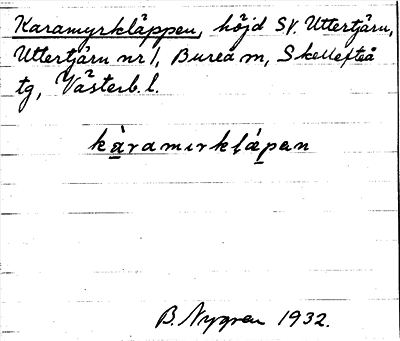 Karamyrkläppen, höjd SV. Uttertjärn,
Uttertjärn nr 1, Bureå m, Skellefteå
tg, Västerb. l.
kàramɩrkḷápan
B. Nygren 1932.